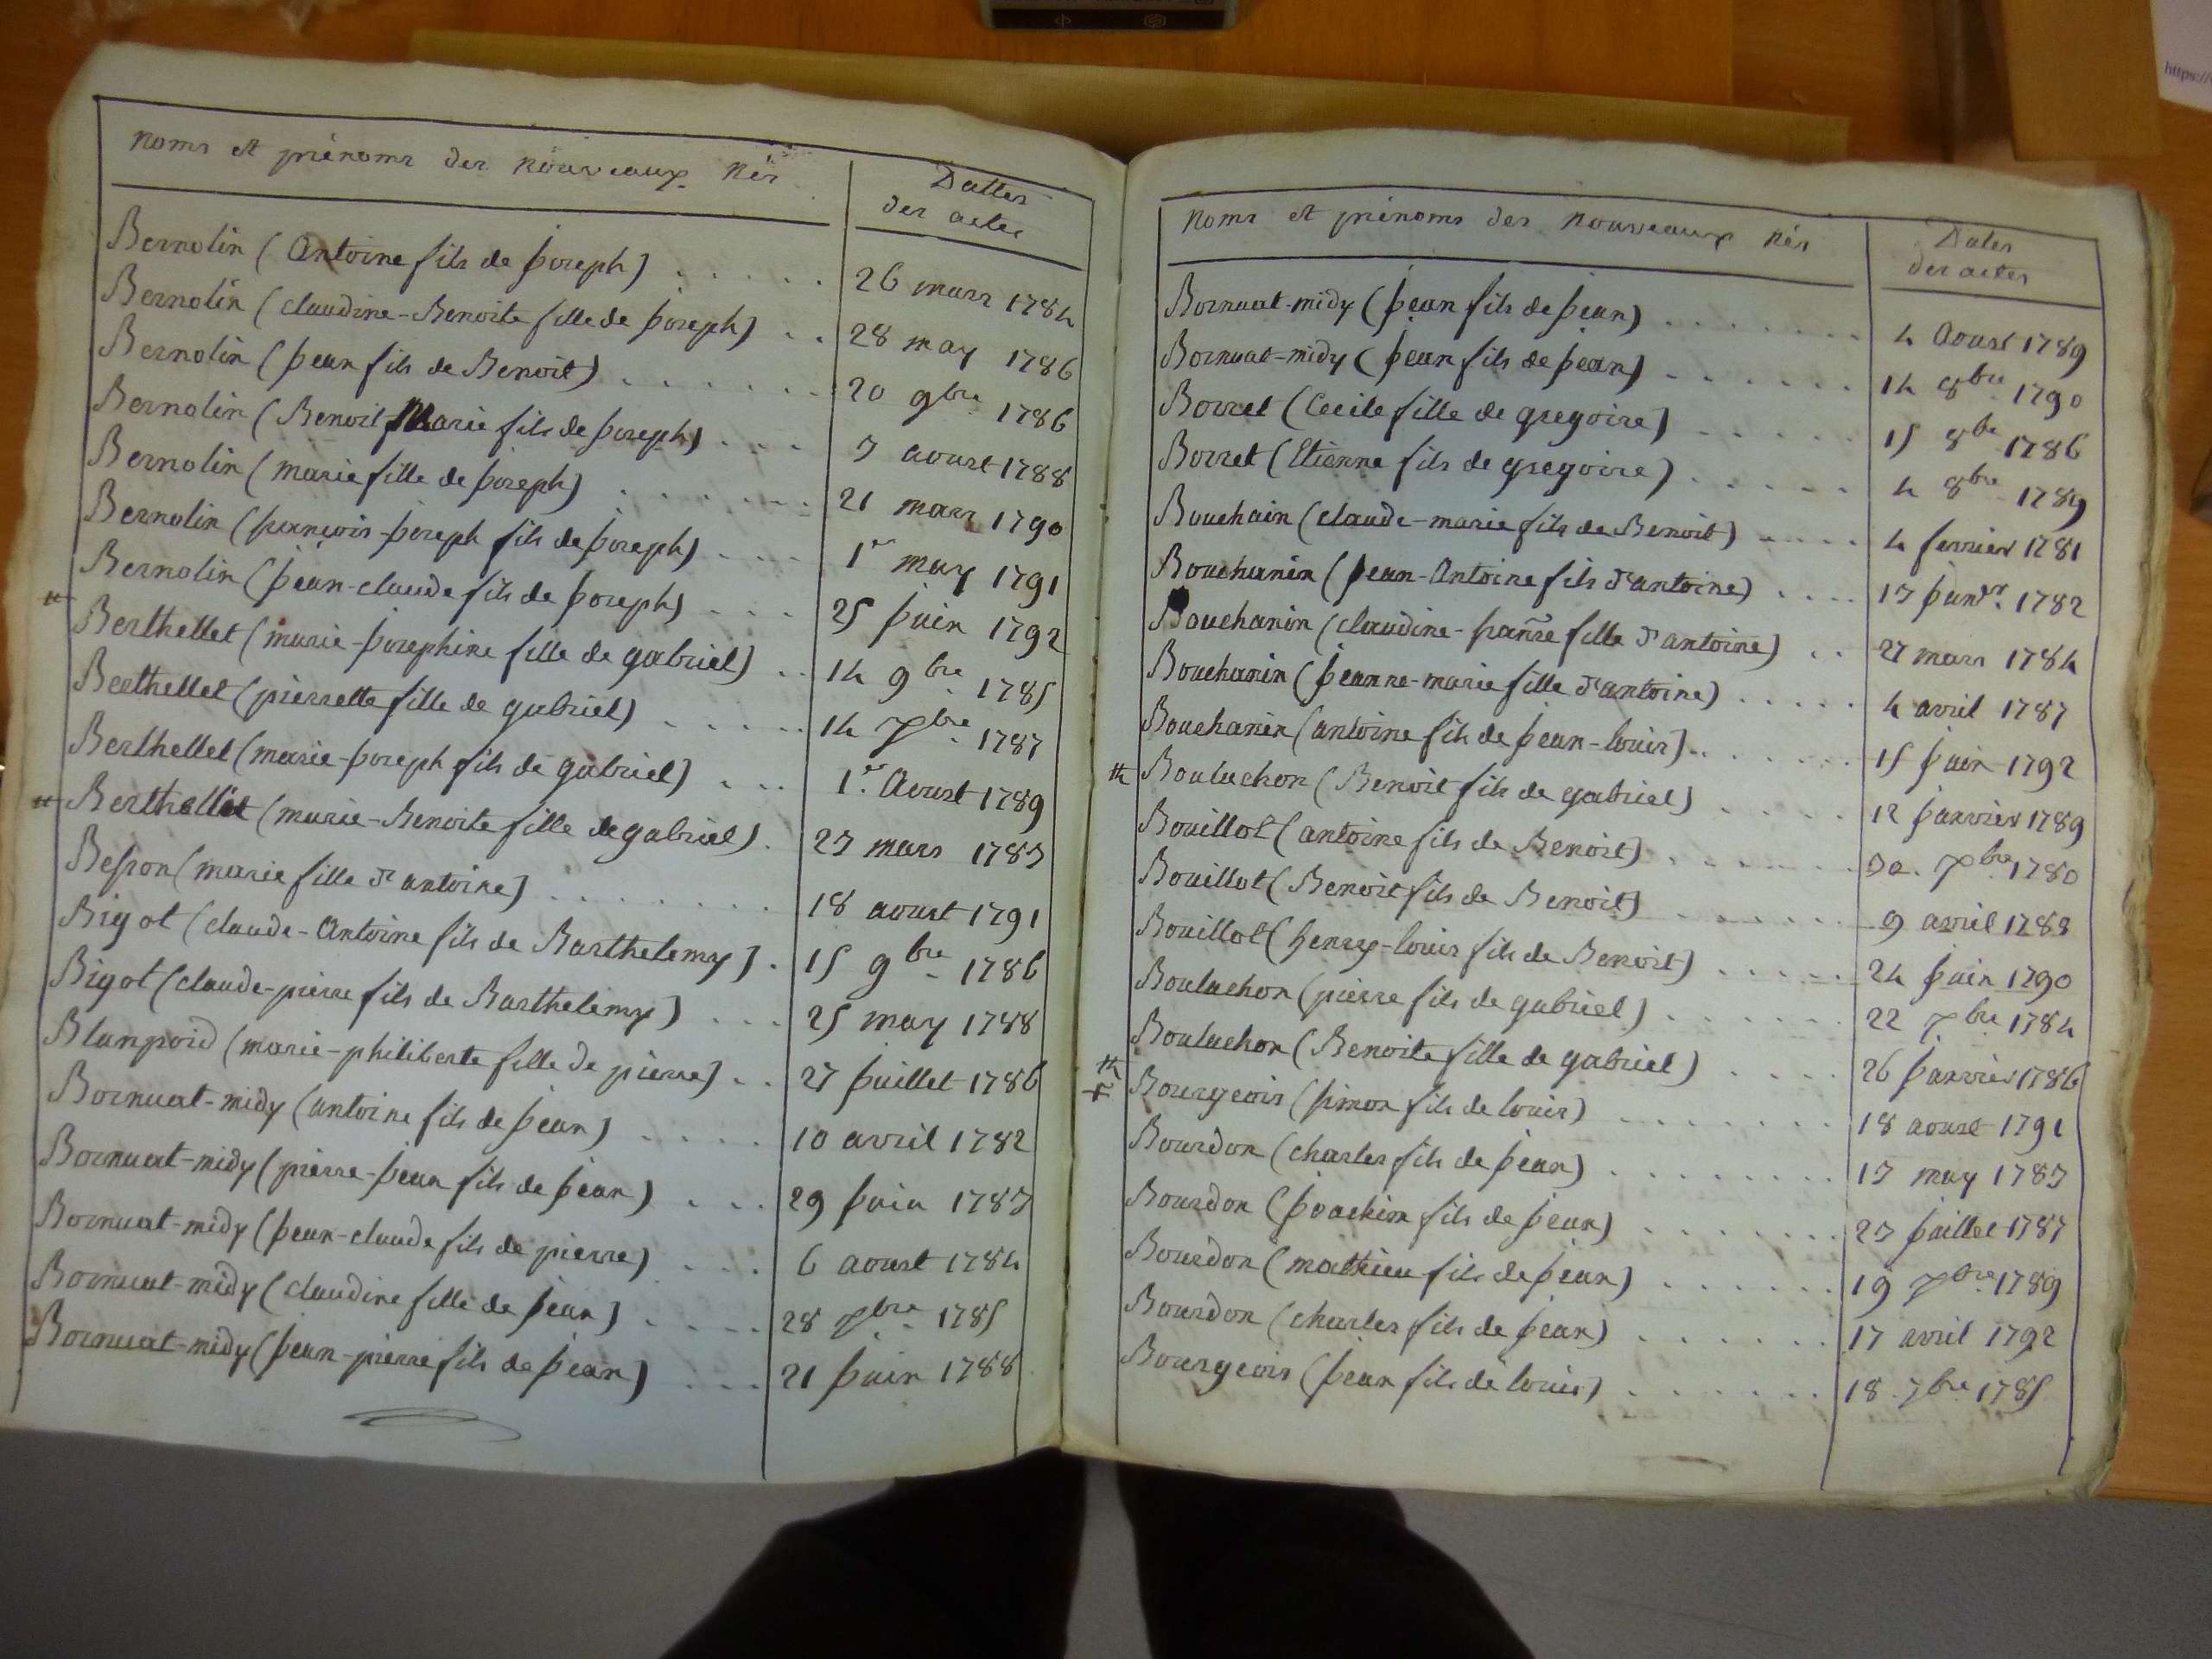 noms et prénoms des nouveaux nés
Dattes
des actes
Bernolin (Antoine fils de Joseph) . . . . . 26 mars 1784
Bernolin (claudine-Benoite fille de Joseph) . . 28 may 1786
Bernolin (Jean fils de Benoit) . . . . . . . 20 9bre 1786
Bernolin (Benoit Marie fils de Joseph) . . . 3 aoust 1788
Bernolin (marie fille de Joseph) . . . . . . . 21 mars 1790
Bernolin (françois-Joseph fils de Joseph) . . . . 1er may 1791
Bernolin (Jean-claude fils de Joseph) . . . 25 Juin 1792
Berthellet (marie-Josephine fille de gabriel) . . 14 9bre 1785
Berthellet (pierrette fille de gabriel) . . . . . 14 7bre 1787
Berthellet (marie-Joseph fils de gabriel) . . . 1er Aoust 1789
Berthellet (marie-Benoite fille de gabriel) . 23 mars 1783
Besson (marie fille d'antoine) . . . . . . . . 18 aoust 1791
Bigot (claude-Antoine fils de Barthelemy) . 15 9bre 1786
Bigot (claude-pierre fils de Barthelemy) . . . 25 may 1788
Blanpoid (marie-philiberte fille de pierre) . . 27 Juillet 1786
Bornuat-midy (antoine fils de Jean) . . . . 10 avril 1782
Bornuat-midy (pierre-Jean fils de Jean) . . . 29 Juin 1783
Bornuat-midy (Jean-claude fils de pierre) . . . . 6 aoust 1784
Bornuat-midy (claudine fille de Jean) . . . . . 28 7bre 1785
Bornuat-midy (Jean-pierre fils de Jean) . . . . 21 Juin 1788
noms et prénoms des nouveaux nés
Dates
des actes
Bornuat-midy (Jean fils de Jean) . . . . . . . 4 Aoust 1789
Bornuat-midy (Jean fils de Jean) . . . . . . 14 8bre 1790
Borret (Cecile fille de gregoire) . . . . . . 15 8bre 1786
Borret (Etienne fils de gregoire) . . . . . . 4 8bre 1789
Bouchain (claude-marie fils de Benoit) . . . . . 4 fevrier 1781
Bouchanin (Jean-Antoine fils d'antoine) . . . . 13 Janvr. 1782
Bouchanin (claudine-franse fille d'antoine) . . 27 mars 1784
Bouchanin (Jeanne-marie fille d'antoine) . . . . . 4 avril 1787
Bouchanin (antoine fils de Jean-louis) . . . . . . . 15 Juin 1792
Bouluchon (Benoit fils de gabriel) . . . . . 12 Janvier 1789
Bouillot (antoine fils de Benoit) . . . . . . . 30 7bre 1780
Bouillot (Benoit fils de Benoit) . . . . . . . 9 avril 1788
Bouillot (henry-louis fils de Benoit) . . . . . 24 Juin 1790
Bouluchon (pierre fils de gabriel) . . . . . . 22 7bre 1784
Bouluchon (Benoite fille de gabriel) . . . . . 26 Janvier 1786
Bourgeois (simon fils de louis) . . . . . . . . 18 aoust 1791
Bourdon (charles fils de Jean) . . . . . . . . 13 may 1783
Bourdon (Joachim fils de Jean) . . . . . . . . 23 Juillet 1787
Bourdon (mathieu fils de Jean) . . . . . . . 19 7bre 1789
Bourdon (charles fils de Jean) . . . . . . . 17 avril 1792
Bourgeois (Jean fils de louis) . . . . . . . . 18 7bre 1785
https://